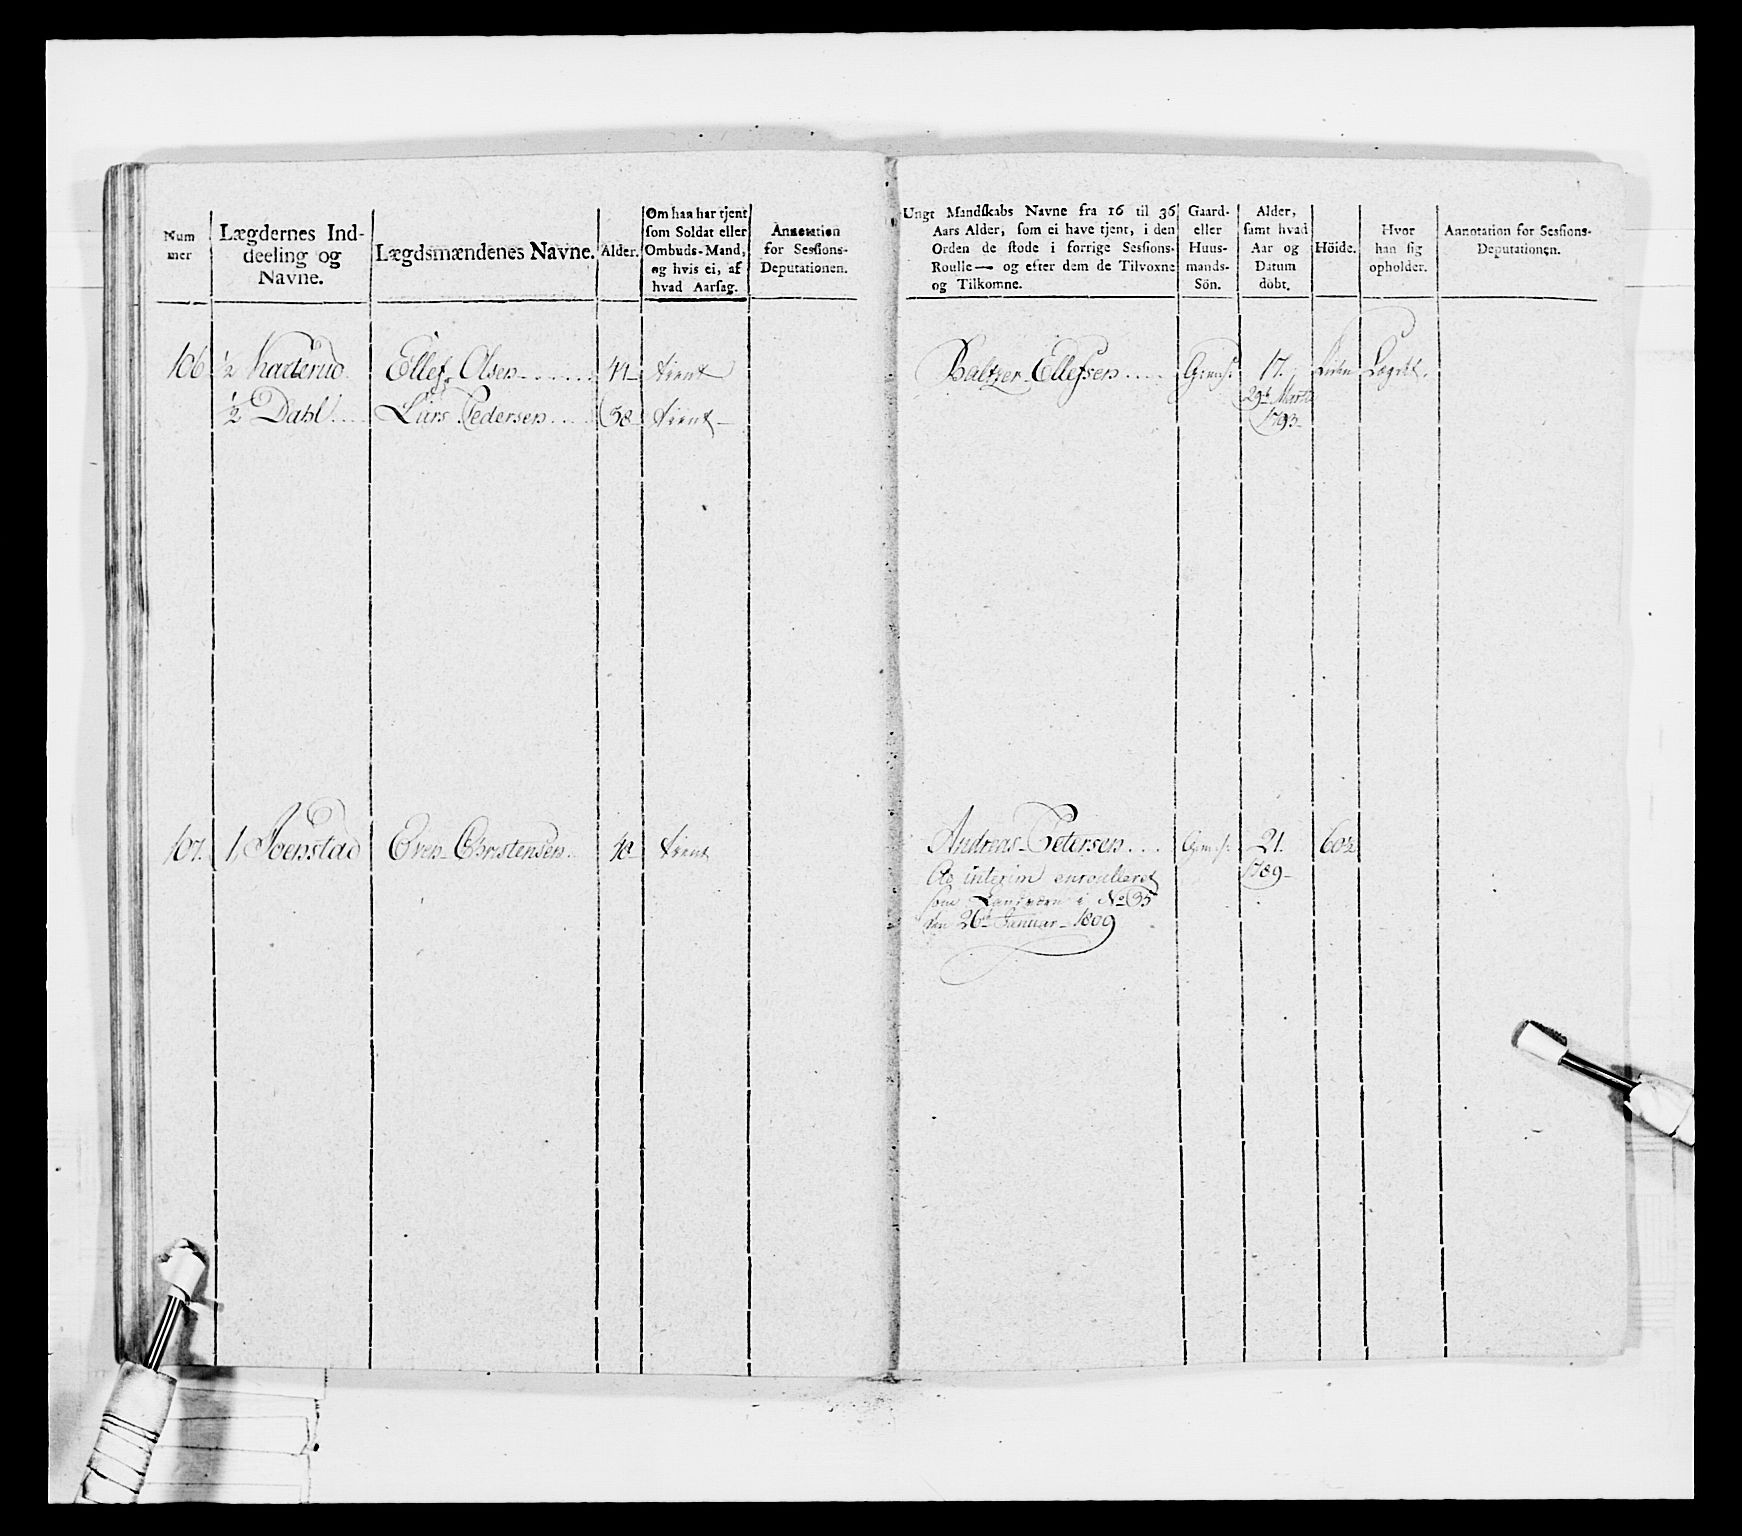 Num
mer
Lægdernes Ind-
deeling og
Navne.
Lægdsmændenes Navne.
Alder.
Om han har tjent
som Soldat eller
Ombuds-Mand,
og hvis ei, af
hvad Aarsag.
Annotation
for Sessions-
Deputationen.
Ungt Mandskabs Navne fra 16 til 36
Aars Alder, som ei have tjent, i den
Orden de stode i forrige Sessions-
Roulle — og efter dem de Tilvoxne
og Tilkomne.
Gaard-
eller
Huus-
mands-
Sön.
Alder,
samt hvad
Aar og
Datum
döbt.
Höide.
Hvor
han sig
opholder.
Annotation for Sessions-
Deputationen.
106 ½ Ellef Olsen 44 tient Baltzer Ellefsen 17. Liden Lægdet.
½ Dahl Lars Pedersen 38 tient 29de Martz
1793
107. 1 Joenstad Even Christensen 40 tient Andreas Petersen 21. 60½
Ad interim enroulleret 1789
som Landværn i No 35
den 26de Januar 1809